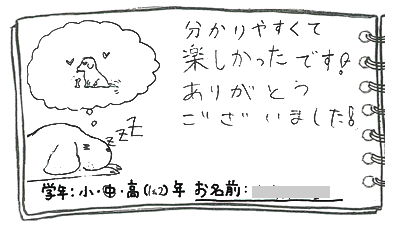 分かりやすくて
楽しかったです!
ありがとう
ございました!
zzZ
学年:小・中・高(1&2)年 お名前: